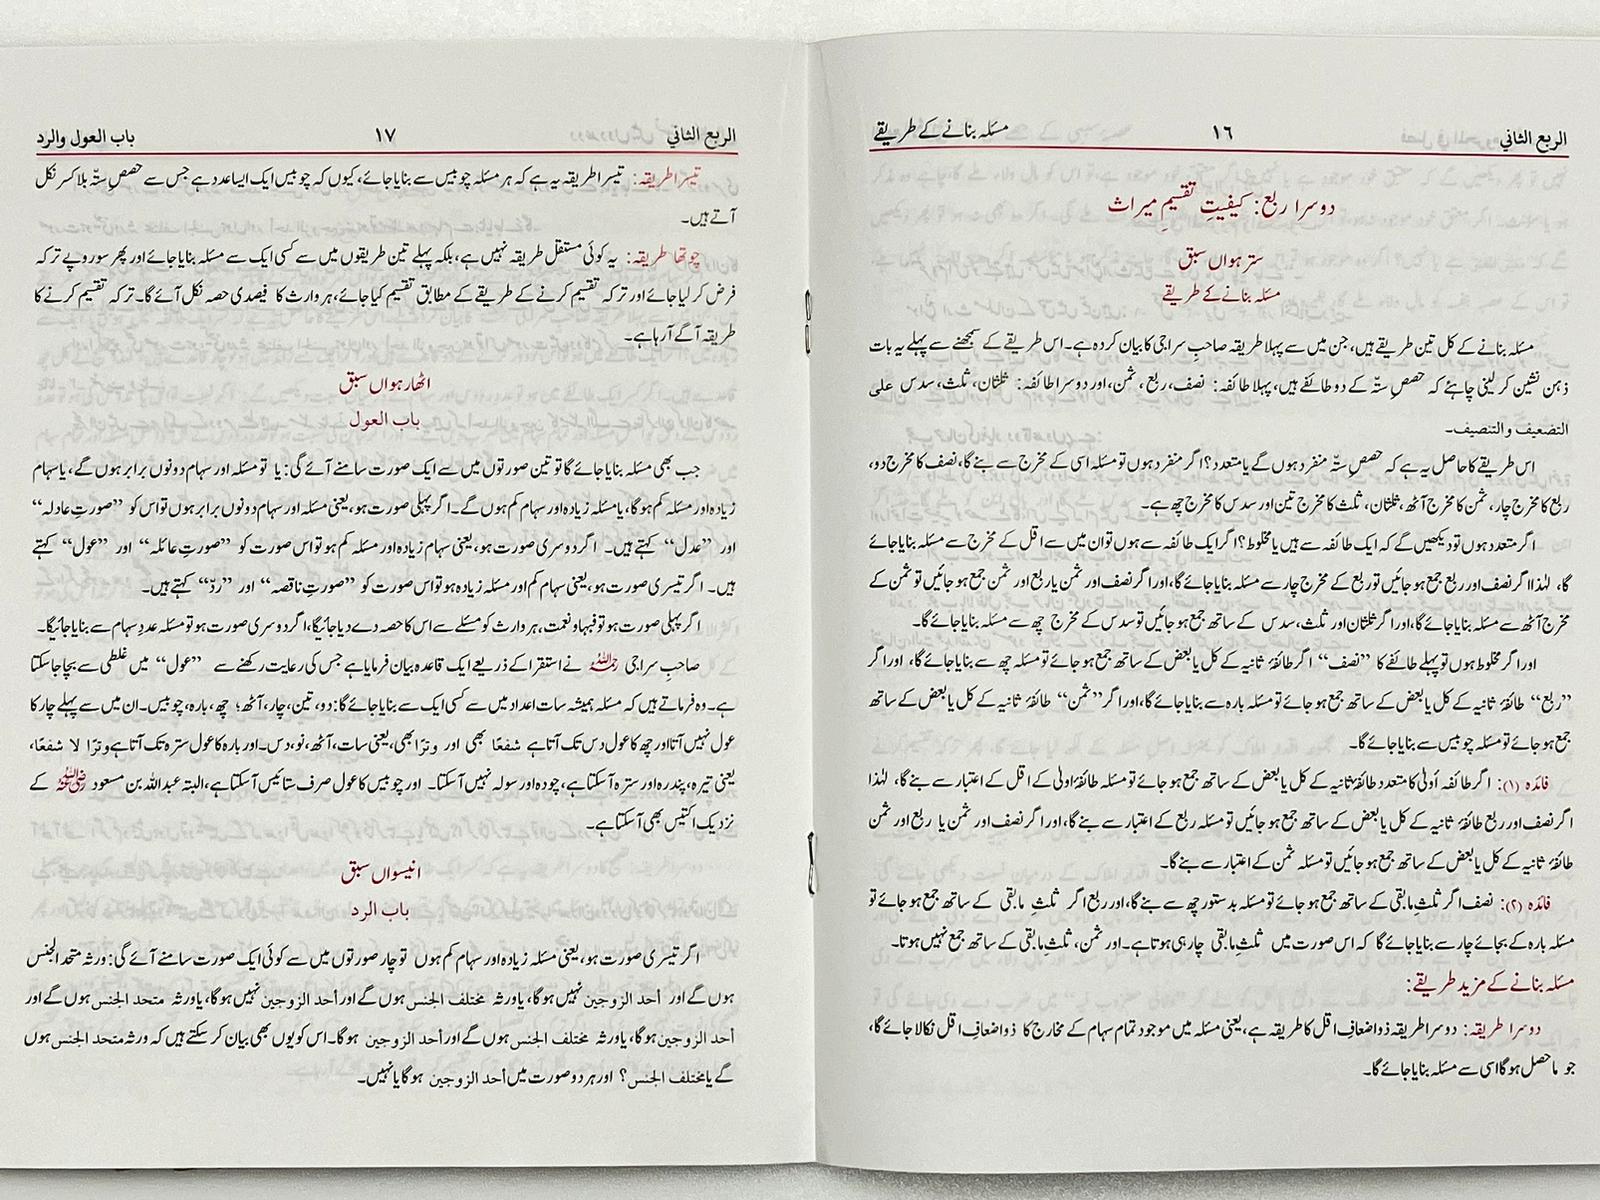 الربع الثاني ١٦ مسئلہ بنانے کے طریقے
دوسرا ربع: کیفیتِ تقسیمِ میراث
سترہواں سبق
مسئلہ بنانے کے طریقے
مسئلہ بنانے کے کل تین طریقے ہیں، جن میں سے پہلا طریقہ صاحبِ سراجی کا بیان کردہ ہے۔ اس طریقے کے سمجھنے سے پہلے یہ بات
ذہن نشین کر لینی چاہئے کہ حصصِ ستّہ کے دو طائفے ہیں، پہلا طائفہ: نصف، ربع، ثمن، اور دوسرا طائفہ: ثلثان، ثلث، سدس علی
التضعیف والتنصیف۔
اس طریقے کا حاصل یہ ہے کہ حصصِ ستّہ منفرد ہوں گے یا متعدد؟ اگر منفرد ہوں تو مسئلہ اسی کے مخرج سے بنے گا، نصف کا مخرج دو،
ربع کا مخرج چار، ثمن کا مخرج آٹھ، ثلثان، ثلث کا مخرج تین اور سدس کا مخرج چھ ہے۔
اگر متعدد ہوں تو دیکھیں گے کہ ایک طائفہ سے ہیں یا مخلوط؟ اگر ایک طائفہ سے ہوں تو ان میں سے اقل کے مخرج سے مسئلہ بنایا جائے
گا، لہٰذا اگر نصف اور ربع جمع ہو جائیں تو ربع کے مخرج چار سے مسئلہ بنایا جائے گا، اور اگر نصف اور ثمن یا ربع اور ثمن جمع ہو جائیں تو ثمن کے
مخرج آٹھ سے مسئلہ بنایا جائے گا، اور اگر ثلثان اور ثلث، سدس کے ساتھ جمع ہو جائیں تو سدس کے مخرج چھ سے مسئلہ بنایا جائے گا۔
اور اگر مخلوط ہوں تو پہلے طائفے کا ”نصف“ اگر طائفۂ ثانیہ کے کل یا بعض کے ساتھ جمع ہو جائے تو مسئلہ چھ سے بنایا جائے گا، اور اگر
”ربع“ طائفۂ ثانیہ کے کل یا بعض کے ساتھ جمع ہو جائے تو مسئلہ بارہ سے بنایا جائے گا، اور اگر ”ثمن“ طائفۂ ثانیہ کے کل یا بعض کے ساتھ
جمع ہو جائے تو مسئلہ چوبیس سے بنایا جائے گا۔
فائدہ (۱): اگر طائفہ أولیٰ کا متعدد طائفۂ ثانیہ کے کل یا بعض کے ساتھ جمع ہو جائے تو مسئلہ طائفۂ اولیٰ کے اقل کے اعتبار سے بنے گا، لہٰذا
اگر نصف اور ربع طائفۂ ثانیہ کے کل یا بعض کے ساتھ جمع ہو جائیں تو مسئلہ ربع کے اعتبار سے بنے گا، اور اگر نصف اور ثمن یا ربع اور ثمن
طائفۂ ثانیہ کے کل یا بعض کے ساتھ جمع ہو جائیں تو مسئلہ ثمن کے اعتبار سے بنے گا۔
فائدہ (۲): نصف اگر ثلثِ مابقی کے ساتھ جمع ہو جائے تو مسئلہ بدستور چھ سے بنے گا، اور ربع اگر ثلثِ مابقی کے ساتھ جمع ہو جائے تو
مسئلہ بارہ کے بجائے چار سے بنایا جائے گا کہ اس صورت میں ثلثِ مابقی چار ہی ہوتا ہے۔ اور ثمن، ثلثِ مابقی کے ساتھ جمع نہیں ہوتا۔
مسئلہ بنانے کے مزید طریقے:
دوسرا طریقہ: دوسرا طریقہ ذو اضعافِ اقل کا طریقہ ہے، یعنی مسئلہ میں موجود تمام سہام کے مخارج کا ذو اضعافِ اقل نکالا جائے گا،
جو ماحصل ہوگا اسی سے مسئلہ بنایا جائے گا۔
الربع الثاني ١٧ باب العول والرد
تیسرا طریقہ: تیسرا طریقہ یہ ہے کہ ہر مسئلہ چوبیس سے بنایا جائے، کیوں کہ چوبیس ایک ایسا عدد ہے جس سے حصصِ ستّہ بلا کسر نکل
آتے ہیں۔
چوتھا طریقہ: یہ کوئی مستقل طریقہ نہیں ہے، بلکہ پہلے تین طریقوں میں سے کسی ایک سے مسئلہ بنایا جائے اور پھر سو روپے ترکہ
فرض کر لیا جائے اور ترکہ تقسیم کرنے کے طریقے کے مطابق تقسیم کیا جائے، ہر وارث کا فیصدی حصہ نکل آئے گا۔ ترکہ تقسیم کرنے کا
طریقہ آگے آ رہا ہے۔
اٹھارہواں سبق
باب العول
جب بھی مسئلہ بنایا جائے گا تو تین صورتوں میں سے ایک صورت سامنے آئے گی: یا تو مسئلہ اور سہام دونوں برابر ہوں گے، یا سہام
زیادہ اور مسئلہ کم ہوگا، یا مسئلہ زیادہ اور سہام کم ہوں گے۔ اگر پہلی صورت ہو، یعنی مسئلہ اور سہام دونوں برابر ہوں تو اس کو ”صورتِ عادلہ“
اور ”عدل“ کہتے ہیں۔ اگر دوسری صورت ہو، یعنی سہام زیادہ اور مسئلہ کم ہو تو اس صورت کو ”صورتِ عائلہ“ اور ”عول“ کہتے
ہیں۔ اگر تیسری صورت ہو، یعنی سہام کم اور مسئلہ زیادہ ہو تو اس صورت کو ”صورتِ ناقصہ“ اور ”ردّ“ کہتے ہیں۔
اگر پہلی صورت ہو تو فبہا ونعمت، ہر وارث کو مسئلے سے اس کا حصہ دے دیا جائیگا، اگر دوسری صورت ہو تو مسئلہ عددِ سہام سے بنایا جائیگا۔
صاحبِ سراجی رحمہ اللہ نے استقرا کے ذریعے ایک قاعدہ بیان فرمایا ہے جس کی رعایت رکھنے سے ”عول“ میں غلطی سے بچا جا سکتا
ہے۔ وہ فرماتے ہیں کہ مسئلہ ہمیشہ سات اعداد میں سے کسی ایک سے بنایا جائے گا: دو، تین، چار، آٹھ؛ چھ، بارہ، چوبیس۔ ان میں سے پہلے چار کا
عول نہیں آتا اور چھ کا عول دس تک آتا ہے شفعًا بھی اور وترًا بھی، یعنی سات، آٹھ، نو، دس۔ اور بارہ کا عول سترہ تک آتا ہے وترًا لا شفعًا،
یعنی تیرہ، پندرہ اور سترہ آ سکتا ہے، چودہ اور سولہ نہیں آ سکتا۔ اور چوبیس کا عول صرف ستائیس آ سکتا ہے، البتہ عبداللہ بن مسعود رضی اللہ عنہ کے
نزدیک اکتیس بھی آ سکتا ہے۔
انیسواں سبق
باب الرد
اگر تیسری صورت ہو، یعنی مسئلہ زیادہ اور سہام کم ہوں تو چار صورتوں میں سے کوئی ایک صورت سامنے آئے گی: ورثہ متحد الجنس
ہوں گے اور أحد الزوجین نہیں ہوگا، یا ورثہ مختلف الجنس ہوں گے اور أحد الزوجین نہیں ہوگا، یا ورثہ متحد الجنس ہوں گے اور
أحد الزوجین ہوگا، یا ورثہ مختلف الجنس ہوں گے اور أحد الزوجین ہوگا۔ اس کو یوں بھی بیان کر سکتے ہیں کہ ورثہ متحد الجنس ہوں
گے یا مختلف الجنس؟ اور ہر دو صورت میں أحد الزوجین ہوگا یا نہیں۔